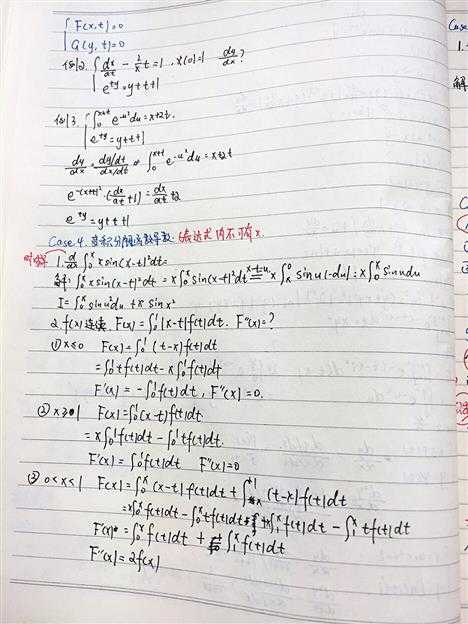 { F(x,t)=0
G(y,t)=0
例2. { dx/dt - 1/x t=1, x(0)=1 dy/dx?
e^ty=y+t+1
例3. { ∫₀^(x+t) e^(-u²)du=x+2t.
e^ty=y+t+1
dy/dx=(dy/dt)/(dx/dt) ∫₀^(x+t) e^(-u²)du=x+2t
e^(-(x+t)²)(dx/dt+1)=dx/dt+2
e^ty=y+t+1
Case 4. 变积分限函数导数. (表达式内不可有x.
1. d/dx ∫₀^x x sin(x-t)²dt=
解: ∫₀^x x sin(x-t)²dt = x∫₀^x sin(x-t)²dt x-t=u x∫ₓ⁰ sinu²(-du)=x∫₀^x sinudu
I=∫₀^x sinu²du+x sinx²
2. f(x)连续. F(x)=∫₀¹|x-t|f(t)dt. F''(x)=?
① x≤0 F(x)=∫₀¹(t-x)f(t)dt
=∫₀¹tf(t)dt-x∫₀¹f(t)dt
F'(x)=-∫₀¹f(t)dt, F''(x)=0.
② x≥1 F(x)=∫₀¹(x-t)f(t)dt
=x∫₀¹f(t)dt-∫₀¹tf(t)dt.
F'(x)=∫₀¹f(t)dt F''(x)=0
③ 0<x<1 F(x)=∫₀^x(x-t)f(t)dt+∫ₓ¹(t-x)f(t)dt
=x∫₀^x f(t)dt-∫₀^x tf(t)dt+x∫₁^x f(t)dt-∫₁^x tf(t)dt
F'(x)=∫₀^x f(t)dt+∫₁^x f(t)dt
F''(x)=2f(x)
Case
1.
解